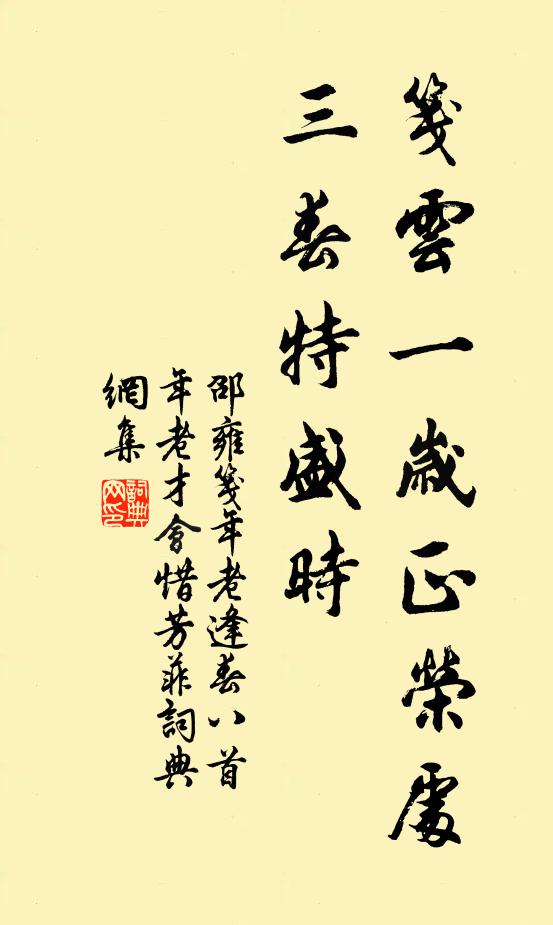 箋雲一歲正榮處
三春特盛時
邵雍箋年老逢春八首
年老才會惜芳菲詞典
網集
詞典
网印